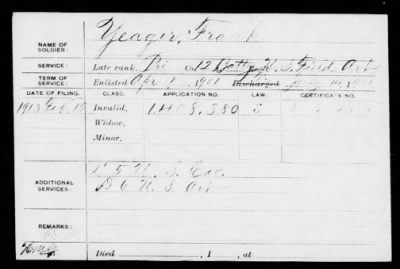 NAME OF SOLDIER: Yeager, Frank
SERVICE: Late rank, Pri Co. 12 Batty U. S. Field Art
TERM OF SERVICE: Enlisted Apr. 1, 1901 Discharged
DATE OF FILING. CLASS. APPLICATION NO. LAW. CERTIFICATE NO.
1913 Invalid, 1408.380
Widow,
Minor,
ADDITIONAL SERVICES: 5 U. S. Cav.
U. S. Art
REMARKS:
Died , 1 , at